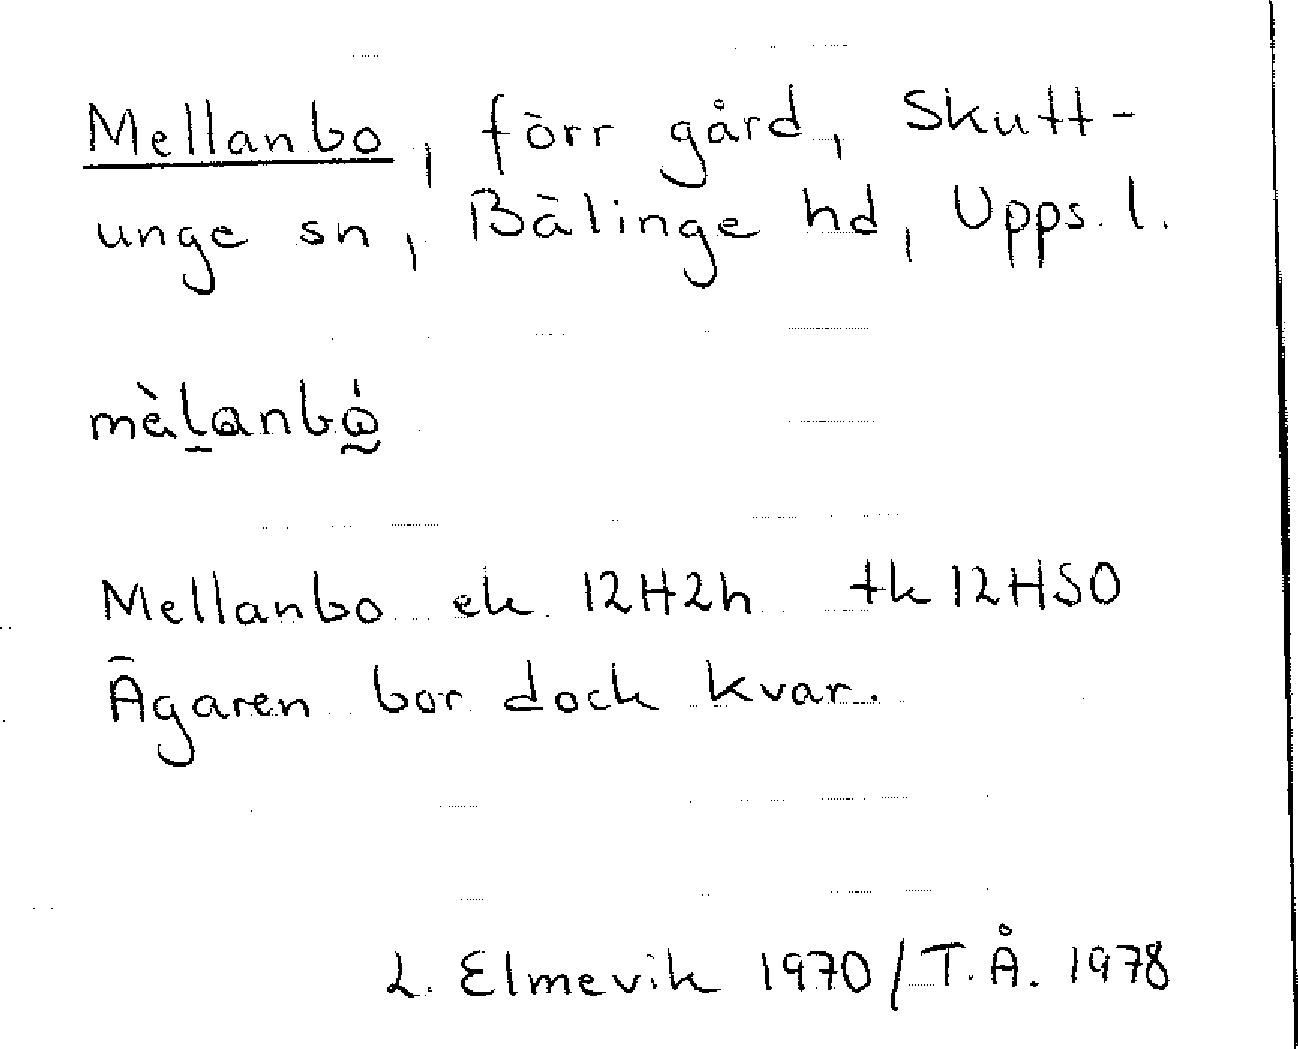 Mellanbo, förr gård, Skutt-
unge sn, Bälinge hd, Upps. l.
mèlanbó
Mellanbo ek. 12H2h tk 12HSO
Ägaren bor dock kvar.
L. Elmevik 1970/T.Å. 1978